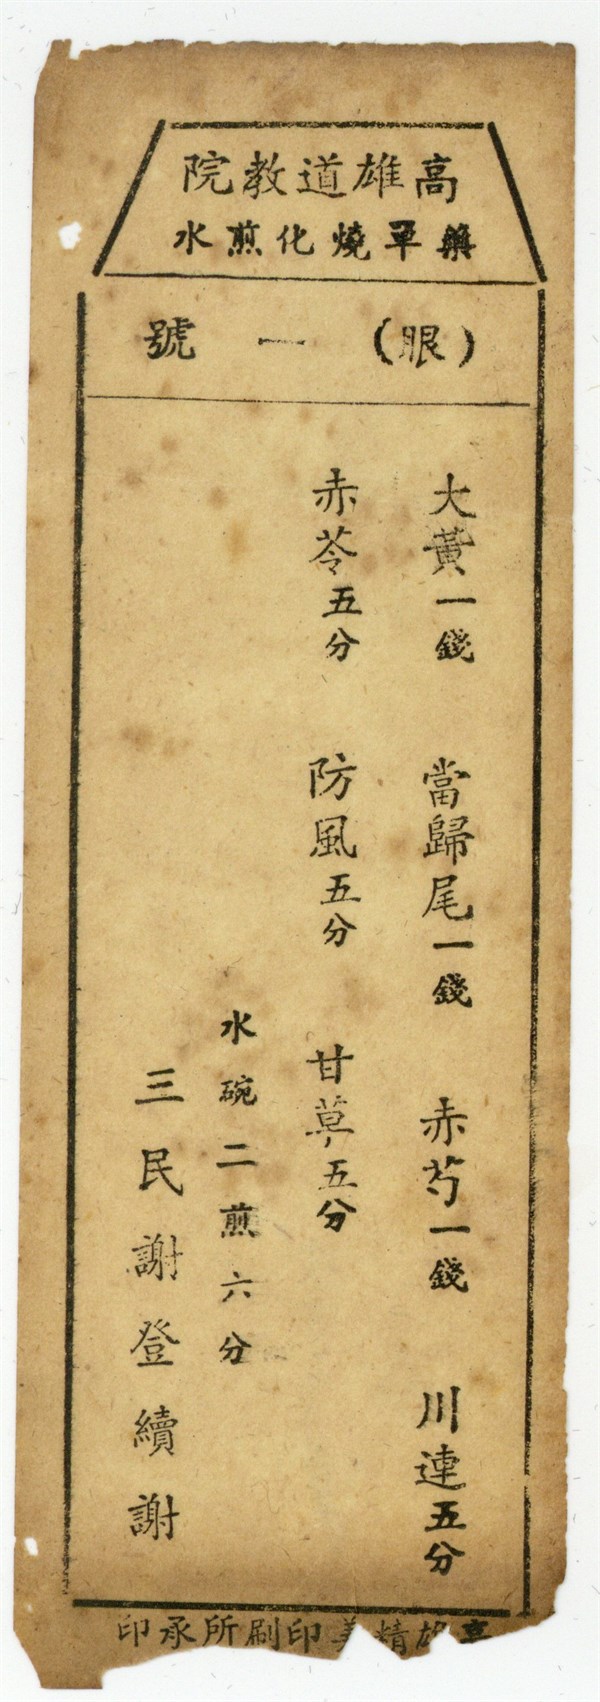 高雄道教院
藥單燒化煎水
（眼）一號
大黃一錢 當歸尾一錢 赤芍一錢 川連五分
赤苓五分 防風五分 甘草五分
水碗二煎六分
三民謝登續謝
高雄精美印刷所承印